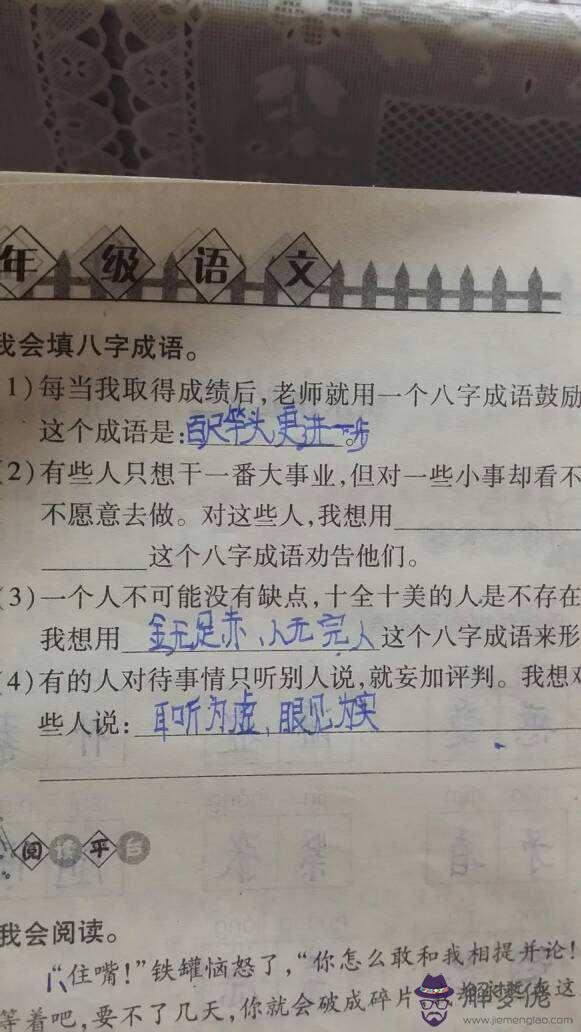 年级语文
我会填八字成语。
1)每当我取得成绩后,老师就用一个八字成语鼓励
这个成语是:百尺竿头,更进一步。
(2)有些人只想干一番大事业,但对一些小事却看不
不愿意去做。对这些人,我想用
这个八字成语劝告他们。
(3)一个人不可能没有缺点,十全十美的人是不存在
我想用 金无足赤,人无完人 这个八字成语来形
(4)有的人对待事情只听别人说,就妄加评判。我想对
些人说:耳听为虚,眼见为实
阅读平台
我会阅读。
“住嘴!”铁罐恼怒了,“你怎么敢和我相提并论!
等着吧,要不了几天,你就会破成碎片
这
解梦佬
www.jiemenglao.com